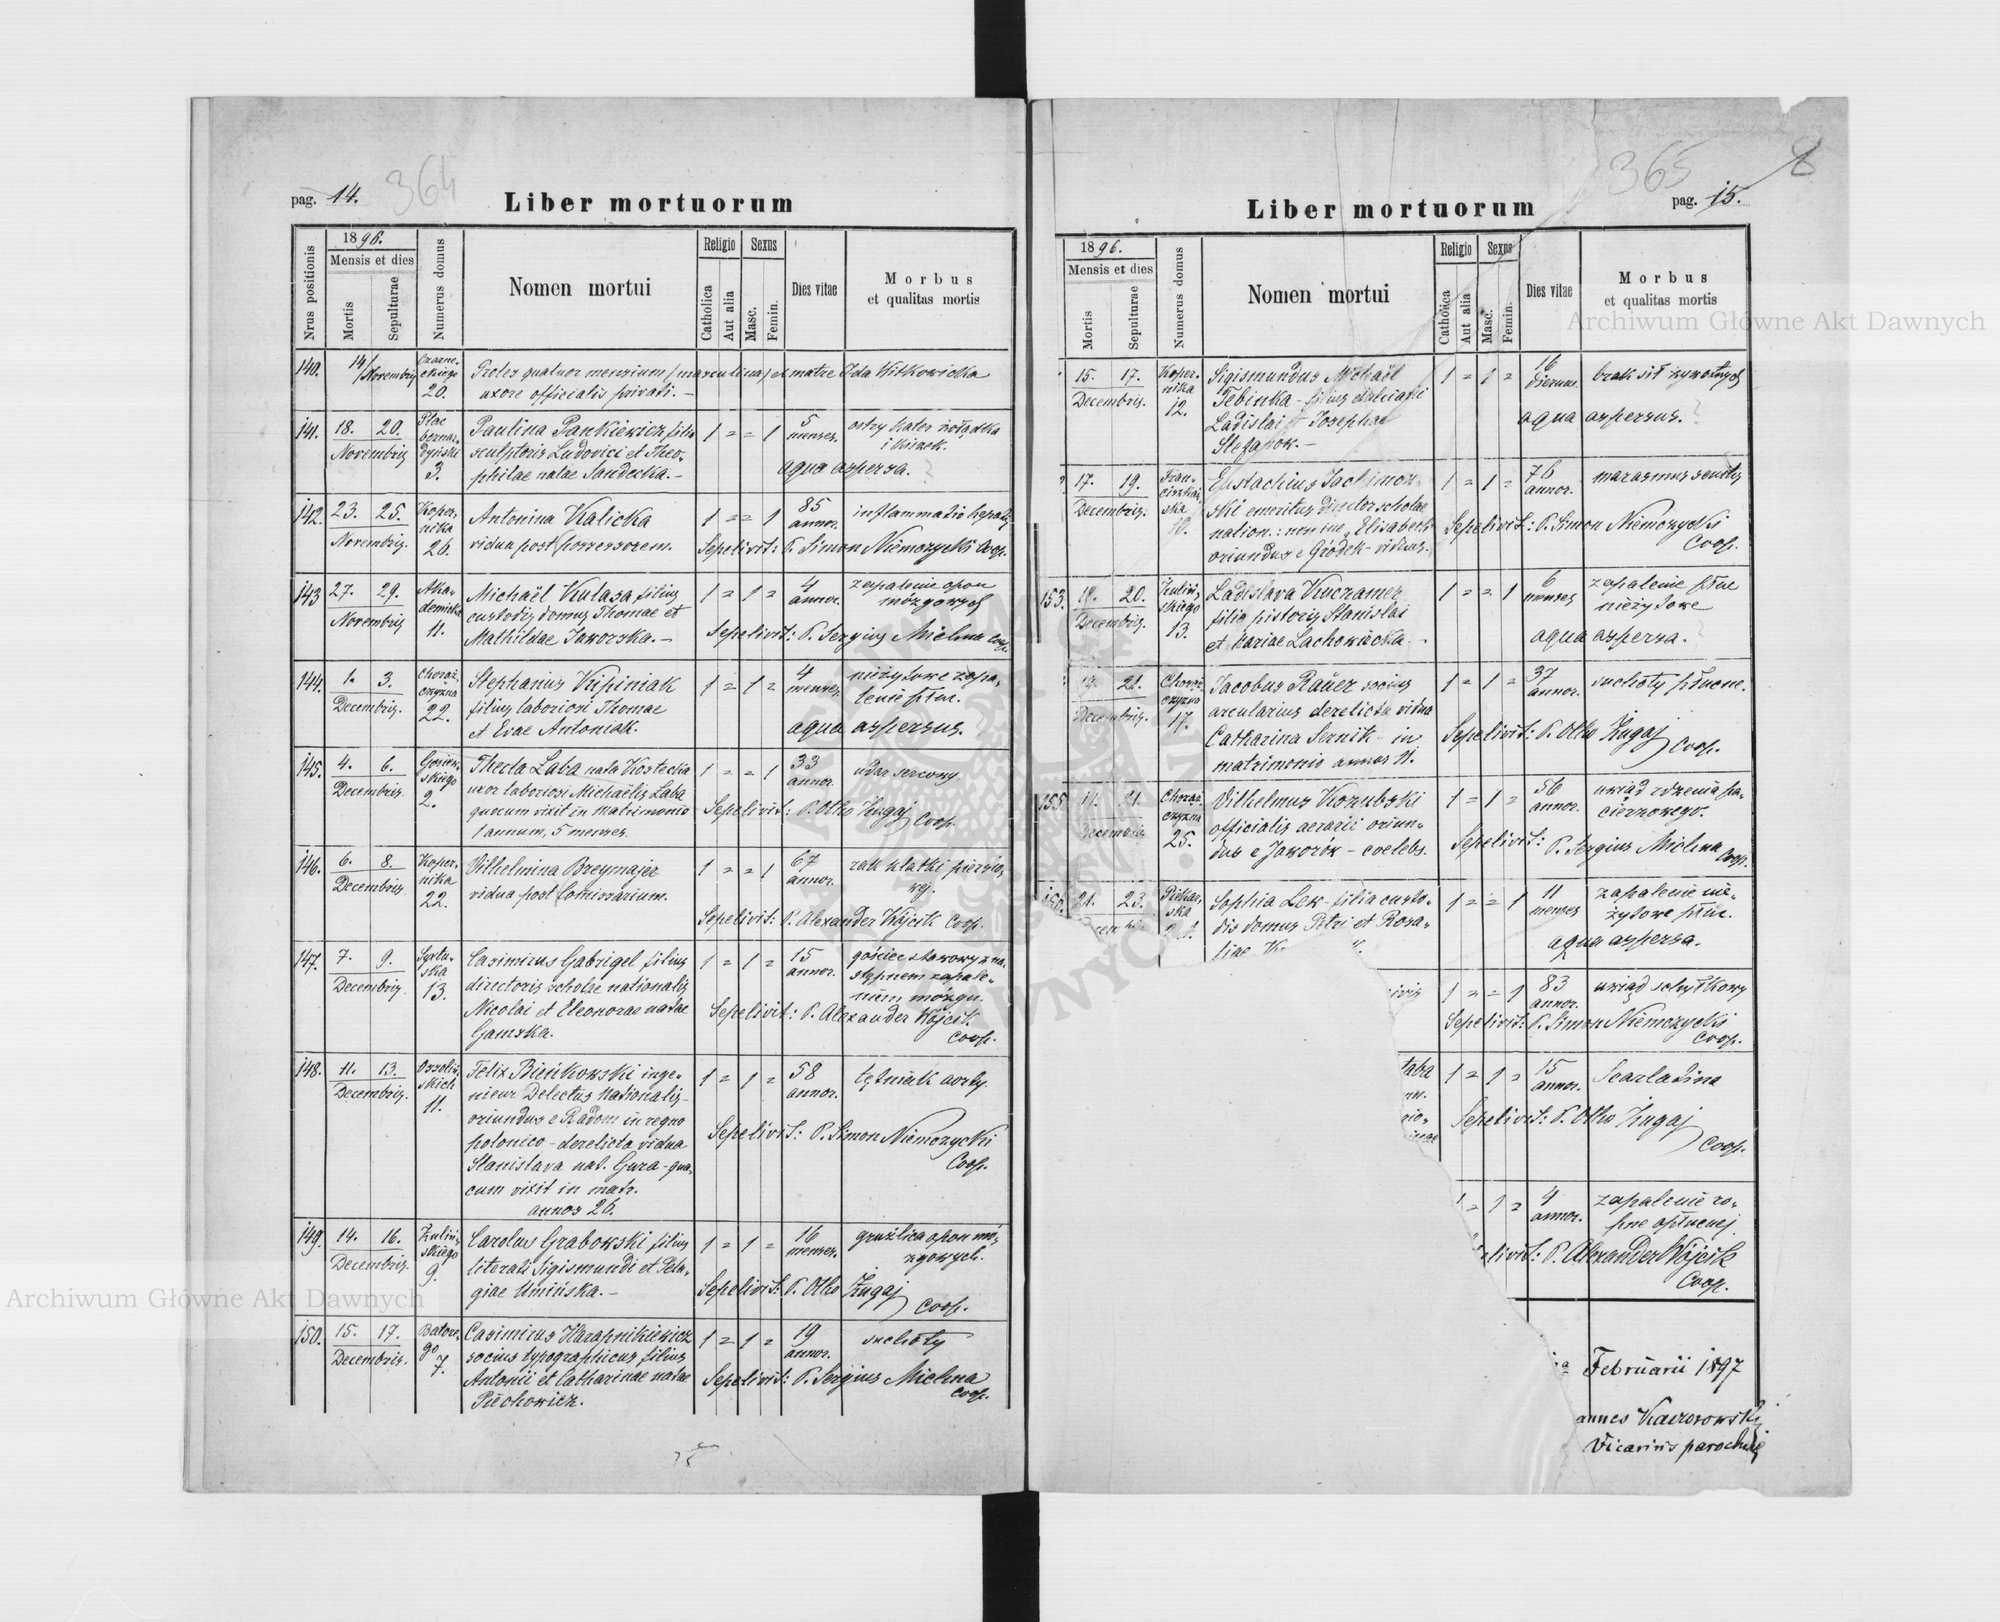 pag. 14.
364
Liber mortuorum
Nrus positionis
1896.
Mensis et dies
Mortis
Sepulturae
Numerus domus
Nomen mortui
Religio
Catholica
Aut alia
Sexus
Masc.
Femin.
Dies vitae
Morbus
et qualitas mortis
140. 14/Novembris Czarne-
ckiego
20.
Proles quatuor mensium /masculina/ ex matre Ida Witkowicka
uxore officialis privati. –
141. 18. 20.
Novembris
Plac
bernar-
dyński
3.
Paulina Pankiewicz filia
sculptoris Ludovici et Theo-
philae natae Sandecka. –
1 = = 1
5
menses.
ostry katar żołądka
i kiszek.
aqua aspersa. ?
142. 23. 25.
Novembris.
Koper-
nika
26.
Antonina Kalicka
vidua post possessorem.
1 = = 1
85
annor.
inflammatio hepatis
Sepelivit: P. Simon Niemczycki Coop.
143 27. 29.
Novembris
Aka-
demicka
11.
Michaël Kulasa filius
custodis domus Thomae et
Mathildae Jaworska. –
1 = 1 =
4
annor.
zapalenie opon
mózgowych
Sepelivit: P. Sergius Michna Coop.
144. 1. 3.
Decembris.
Chorąż-
czyzna
22.
Stephanus Kripiniak
filius laboriosi Thomae
et Evae Antoniak.
1 = 1 =
4
menses.
nieżytowe zapa-
lenie płuc.
aqua aspersus. ?
145. 4. 6.
Decembris.
2.
Thecla Łaba nata Kostecka
uxor laboriosi Michaëlis Łaba
quocum vixit in matrimonio
1 annum, 5 menses.
1 = = 1
33
annor.
udar sercowy.
Sepelivit: P. Otho Żugaj Coop.
146. 6. 8.
Decembris
Koper-
nika
22.
Vilhelmina Breymajer
vidua post Comissarium.
1 = = 1
67
annor.
rak klatki piersio-
wej.
Sepelivit: P. Alexander Wójcik Coop.
147. 7. 9.
Decembris.
Sykstu-
ska
13.
Casimirus Gabrigel filius
directoris scholae nationalis
Nicolai et Eleonorae natae
Gamska.
1 = 1 =
15
annor.
gościec stawowy z na-
stępnem zapale-
niem mózgu.
Sepelivit: P. Alexander Wójcik.
Coop.
148. 11. 13.
Decembris.
Ossoliń-
skich
11.
Felix Bieńkowski inge-
nieur Delectus Nationalis –
oriundus e Radom in regno
polonico – derelicta vidua
Stanislava nat. Gura – qua-
cum vixit in matr.
annos 26.
1 = 1 =
58
annor.
tętniak aorty.
Sepelivit: P. Simon Niemczycki
Coop.
149. 14. 16.
Decembris.
Zuliń-
skiego
9.
Carolus Grabowski filius
literati Sigismundi et Pela-
giae Umińska. –
1 = 1 =
16
menses.
gruźlica opon mó-
zgowych.
Sepelivit: P. Otho Żugaj
Coop.
150. 15. 17.
Decembris.
Batore-
go
7.
Casimirus Harapnikiewicz
socius typographicus filius
Antonii et Catharinae natae
Puchowicz.
1 = 1 =
19
annor.
suchoty
Sepelivit: P. Sergius Michna
Coop.
365
8
Liber mortuorum
pag. 15.
1896.
Mensis et dies
Mortis
Sepulturae
Numerus domus
Nomen mortui
Religio
Catholica
Aut alia
Sexus
Masc.
Femin.
Dies vitae
Morbus
et qualitas mortis
15. 17.
Decembris.
Koper-
nika
12.
Sigismundus Michaël
Tebinka – filius
Ladislai et Josephae
1 = 1 =
16
dierum.
brak sił żywotnych
aqua aspersus. ?
17. 19.
Decembris.
Fran-
ciszkań-
ska
10.
Eustachius Jachimow-
ski emeritus director scholae
nation.: nomine „Elisabeth"
oriundus e Gródek – viduus.
1 = 1 =
76
annor.
marasmus senilis
Sepelivit: P. Simon Niemczycki
Coop.
153. 18. 20.
Decembris.
Zuliń-
skiego
13.
Ladislava Kuczamer
filia pistoris Stanislai
et Mariae Lachowiecka. –
1 = = 1
6
menses
zapalenie płuc
nieżytowe
aqua aspersa. ?
19. 21.
Decembris.
Chorąż-
czyzna
17.
Jacobus Rauer socius
arcularius derelicta vidua
Catharina Sernik – in
matrimonio annos 11.
1 = 1 =
37
annor.
suchoty płucne.
Sepelivit: P. Otho Żugaj Coop.
155. 19. 21.
Decembris
Chorąż-
czyzna
25.
Vilhelmus Kozubski
officialis aerarii oriun-
dus e Jaworów – coelebs.
1 = 1 =
56
annor.
uwiąd rdzenia pa-
cierzowego.
Sepelivit: P. Sergius Michna Coop.
156. 21. 23.
Piekar-
ska
Sophia Lew – filia custo-
dis domus Petri et Rosa-
liae
1 = = 1
11
menses
zapalenie nie-
żytowe płuc.
aqua aspersa.
1 = = 1
83
annor.
uwiąd schyłkowy
Sepelivit: P. Simon Niemczycki
Coop.
1 = 1 =
15
annor.
Scarlatina
Sepelivit: P. Otho Żugaj
Coop.
1 = 1 =
4
annor.
zapalenie ro-
pne opłucnej
elivit: P. Alexander Wójcik
Coop.
Februarii 1897
annes Kaczorowski
Vicarius parochiae
Archiwum Główne Akt Dawnych
Archiwum Główne Akt Dawnych